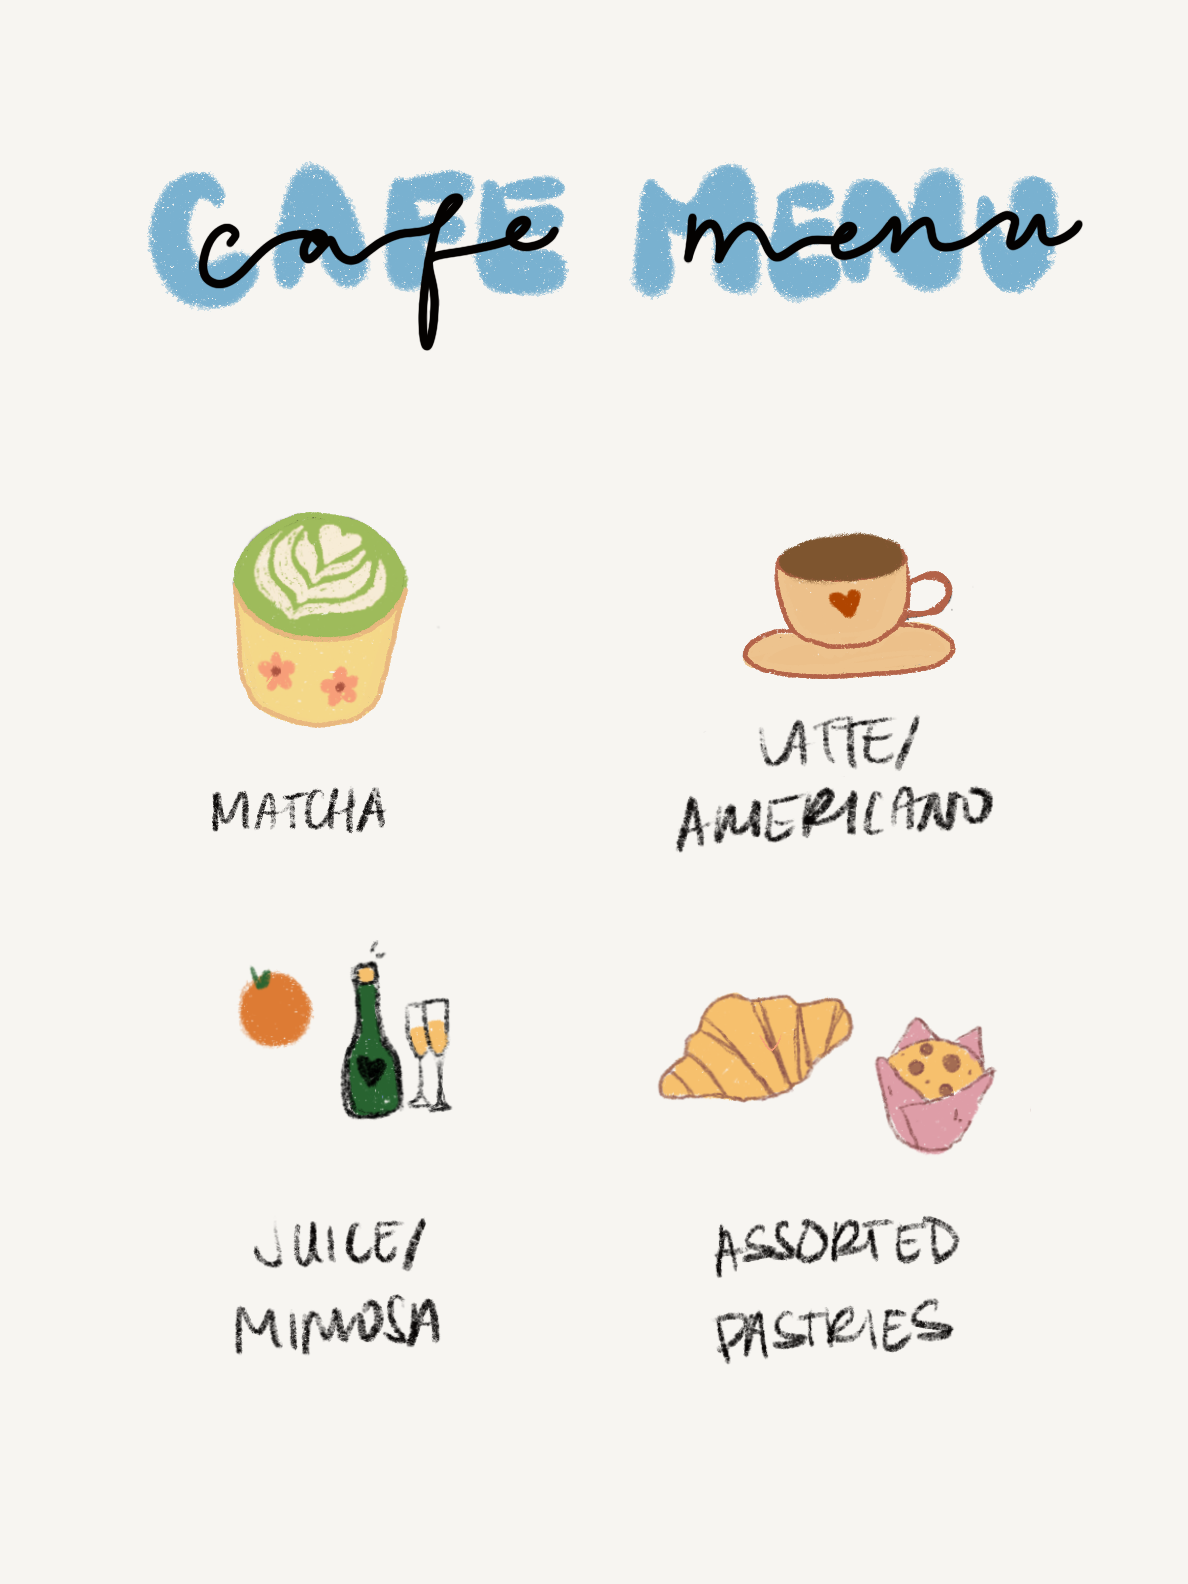 CAFE MENU
cafe menu
MATCHA
LATTE/
AMERICANO
JUICE/
MIMOSA
ASSORTED
PASTRIES